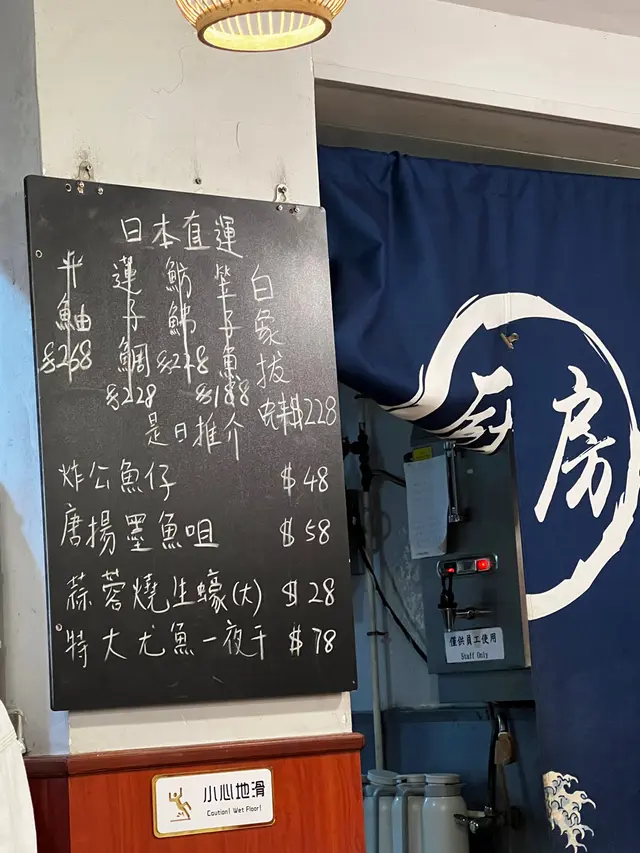 日本直運
鮋
$268
蓮子鯛
$228
魴鮄
$228
笠子魚
$188
白象拔蚌
$228
是日推介
炸公魚仔 $48
唐揚墨魚咀 $58
蒜蓉燒生蠔(大) $28
特大尤魚一夜干 $78
小心地滑
Caution! Wet Floor!
房
僅供員工使用
Staff Only